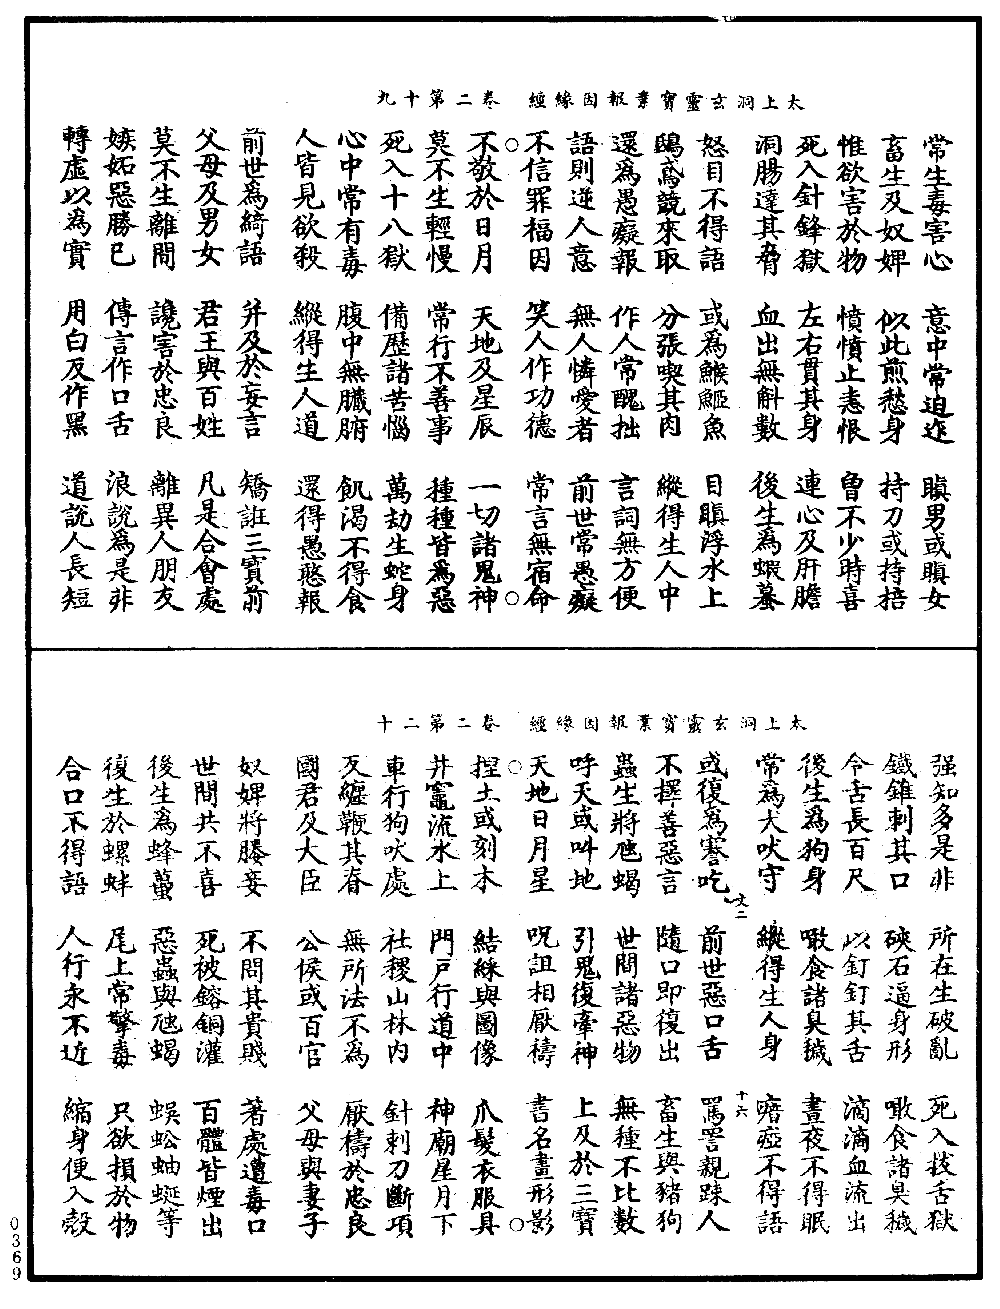 太上洞玄靈寶業報因緣經　卷二第十九
常生毒害心　意中常迫迮　瞋男或瞋女
畜生及奴婢　似此煎愁身　持刀或持掊
惟欲害於物　憤憤止恚恨　曾不少時喜
死入針鋒獄　左右貫其身　連心及肝膽
洞腸達其脅　血出無斛數　後生為蝦蟇
怒目不得語　或為鯸䱌魚　目瞋浮水上
鴟鳶競來取　分張喫其肉　縱得生人中
還為愚癡報　作人常醜拙　言詞無方便
語則逆人意　無人憐愛者　前世常愚癡
不信罪福因　笑人作功德　常言無宿命
○不敬於日月　天地及星辰　一切諸鬼神○
莫不生輕慢　常行不善事　種種皆為惡
死入十八獄　備歷諸苦惱　萬劫生蛇身
心中常有毒　腹中無臟腑　飢渴不得食
人皆見欲殺　縱得生人道　還得愚憨報
前世為綺語　并及於妄言　矯誑三寶前
父母及男女　君王與百姓　凡是合會處
莫不生離間　讒害於忠良　離異人朋友
嫉妬惡勝己　傳言作口舌　浪說為是非
轉虛以為實　用白反作黑　道說人長短
太上洞玄靈寶業報因緣經　卷二第二十
强知多是非　所在生破亂　死入拔舌獄
鐵錐刺其口　硤石逼身形　噉食諸臭穢
令舌長百尺　以釘釘其舌　滴滴血流出
後生為狗身　噉食諸臭穢　晝夜不得眠
常為犬吠守　縱得生人身　瘖瘂不得語
或復為謇吃　前世惡口舌　罵詈親踈人
文二　十六
不擇善惡言　隨口即復出　畜生與豬狗
蟲生將虺蝎　世間諸惡物　無種不比數
呼天或叫地　引鬼復牽神　上及於三寶
天地日月星　呪詛相厭禱　書名畫形影
○捏土或刻木　結綵與圖像　爪髮衣服具○
井竈流水上　門戶行道中　神廟星月下
車行狗吠處　社稷山林內　針刺刀斷項
反纏鞭其脊　無所法不為　厭禱於忠良
國君及大臣　公侯或百官　父母與妻子
奴婢將媵妾　不問其貴賤　著處遭毒口
世間共不喜　死被鎔銅灌　百體皆煙出
後生為蜂蠆　惡蟲與虺蝎　蜈蚣蚰蜒等
復生於螺蚌　尾上常擎毒　只欲損於物
合口不得語　人行永不近　縮身便入殼
0369